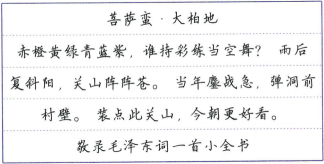 菩萨蛮·大柏地
赤橙黄绿青蓝紫，谁持彩练当空舞？ 雨后
复斜阳，关山阵阵苍。 当年鏖战急，弹洞前
村壁。 装点此关山，今朝更好看。
敬录毛泽东词一首小全书